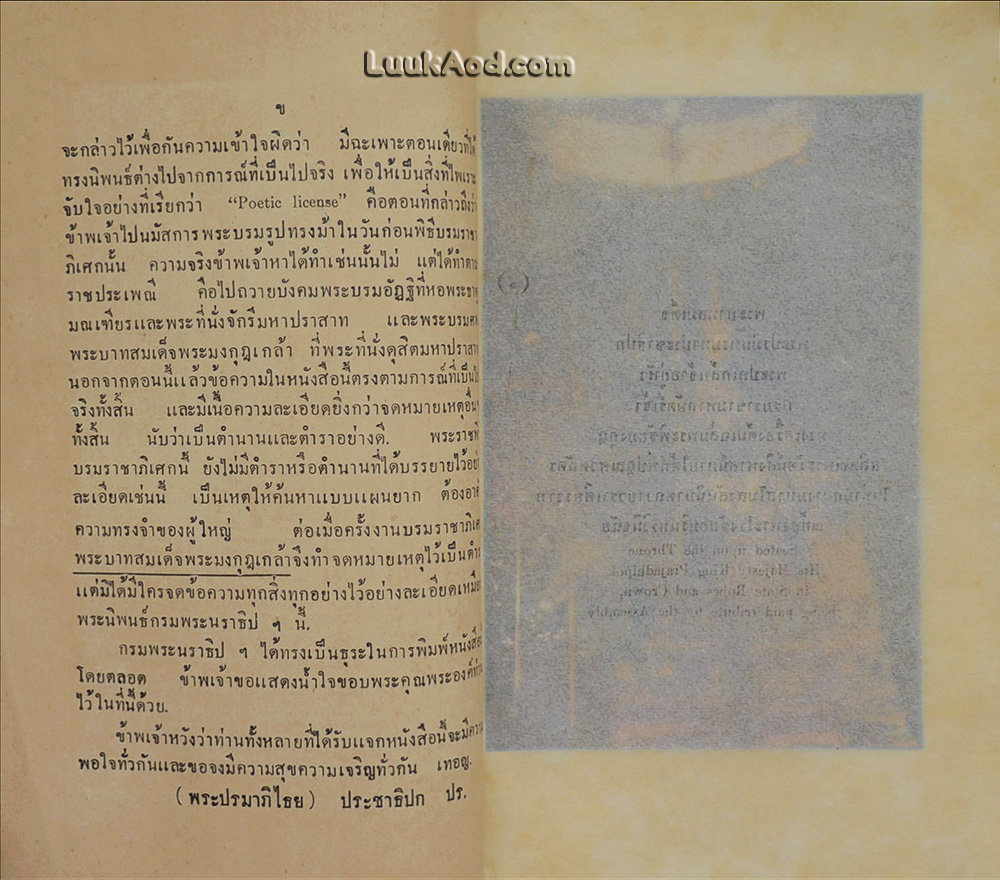 LuukAod.com
ข
จะกล่าวไว้เพื่อกันความเข้าใจผิดว่า มีฉะเพาะตอนเดียวที่ได้
ทรงนิพนธ์ต่างไปจากการณ์ที่เป็นไปจริง เพื่อให้เป็นสิ่งที่ไพเราะ
จับใจอย่างที่เรียกว่า “Poetic license” คือตอนที่กล่าวถึงว่า
ข้าพเจ้าไปนมัสการพระบรมรูปทรงม้าในวันก่อนพิธีบรมราชา
ภิเศกนั้น ความจริงข้าพเจ้าหาได้ทำเช่นนั้นไม่ แต่ได้ทำตาม
ราชประเพณี คือไปถวายบังคมพระบรมอัฏฐิที่หอพระธาตุ
มณเฑียรและพระที่นั่งจักรีมหาปราสาท และพระบรมศพ
พระบาทสมเด็จพระมงกุฎเกล้า ที่พระที่นั่งดุสิตมหาปราสาท
นอกจากตอนนี้แล้วข้อความในหนังสือนี้ตรงตามการณ์ที่เป็นไป
จริงทั้งสิ้น และมีเนื้อความละเอียดยิ่งกว่าจดหมายเหตุอื่นๆ
ทั้งสิ้น นับว่าเป็นตำนานและตำราอย่างดี. พระราชพิธี
บรมราชาภิเศกนี้ ยังไม่มีตำราหรือตำนานที่ได้บรรยายไว้อย่าง
ละเอียดเช่นนี้ เป็นเหตุให้ค้นหาแบบแผนยาก ต้องอาศัย
ความทรงจำของผู้ใหญ่ ต่อเมื่อครั้งงานบรมราชาภิเศก
พระบาทสมเด็จพระมงกุฎเกล้าจึงทำจดหมายเหตุไว้เป็นตำรา
แต่มิได้มีใครจดข้อความทุกสิ่งทุกอย่างไว้อย่างละเอียดเหมือน
พระนิพนธ์กรมพระนราธิป ฯ นี้.
กรมพระนราธิป ฯ ได้ทรงเป็นธุระในการพิมพ์หนังสือนี้
โดยตลอด ข้าพเจ้าขอแสดงน้ำใจขอบพระคุณพระองค์ท่าน
ไว้ในที่นี้ด้วย.
ข้าพเจ้าหวังว่าท่านทั้งหลายที่ได้รับแจกหนังสือนี้จะมีความ
พอใจทั่วกันและขอจงมีความสุขความเจริญทั่วกัน เทอญ.
(พระปรมาภิไธย) ประชาธิปก ปร.
พระบาทสมเด็จ
พระปรมินทรมหาประชาธิปก
พระปกเกล้าเจ้าอยู่หัว
Seated upon the Throne
His Majesty King Prajadhipok
in State Robes and Crown,
being paid tribute to by the Assembly